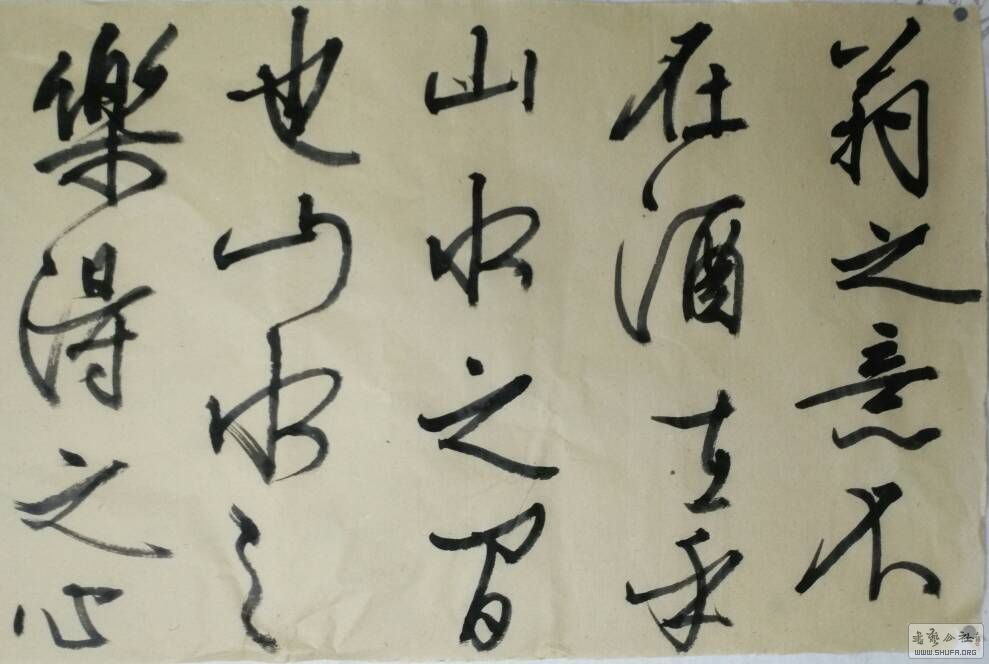 翁之意不
在酒在乎
山水之間
也山水之
樂得之心
書藝公社
WWW.SHUFA.ORG